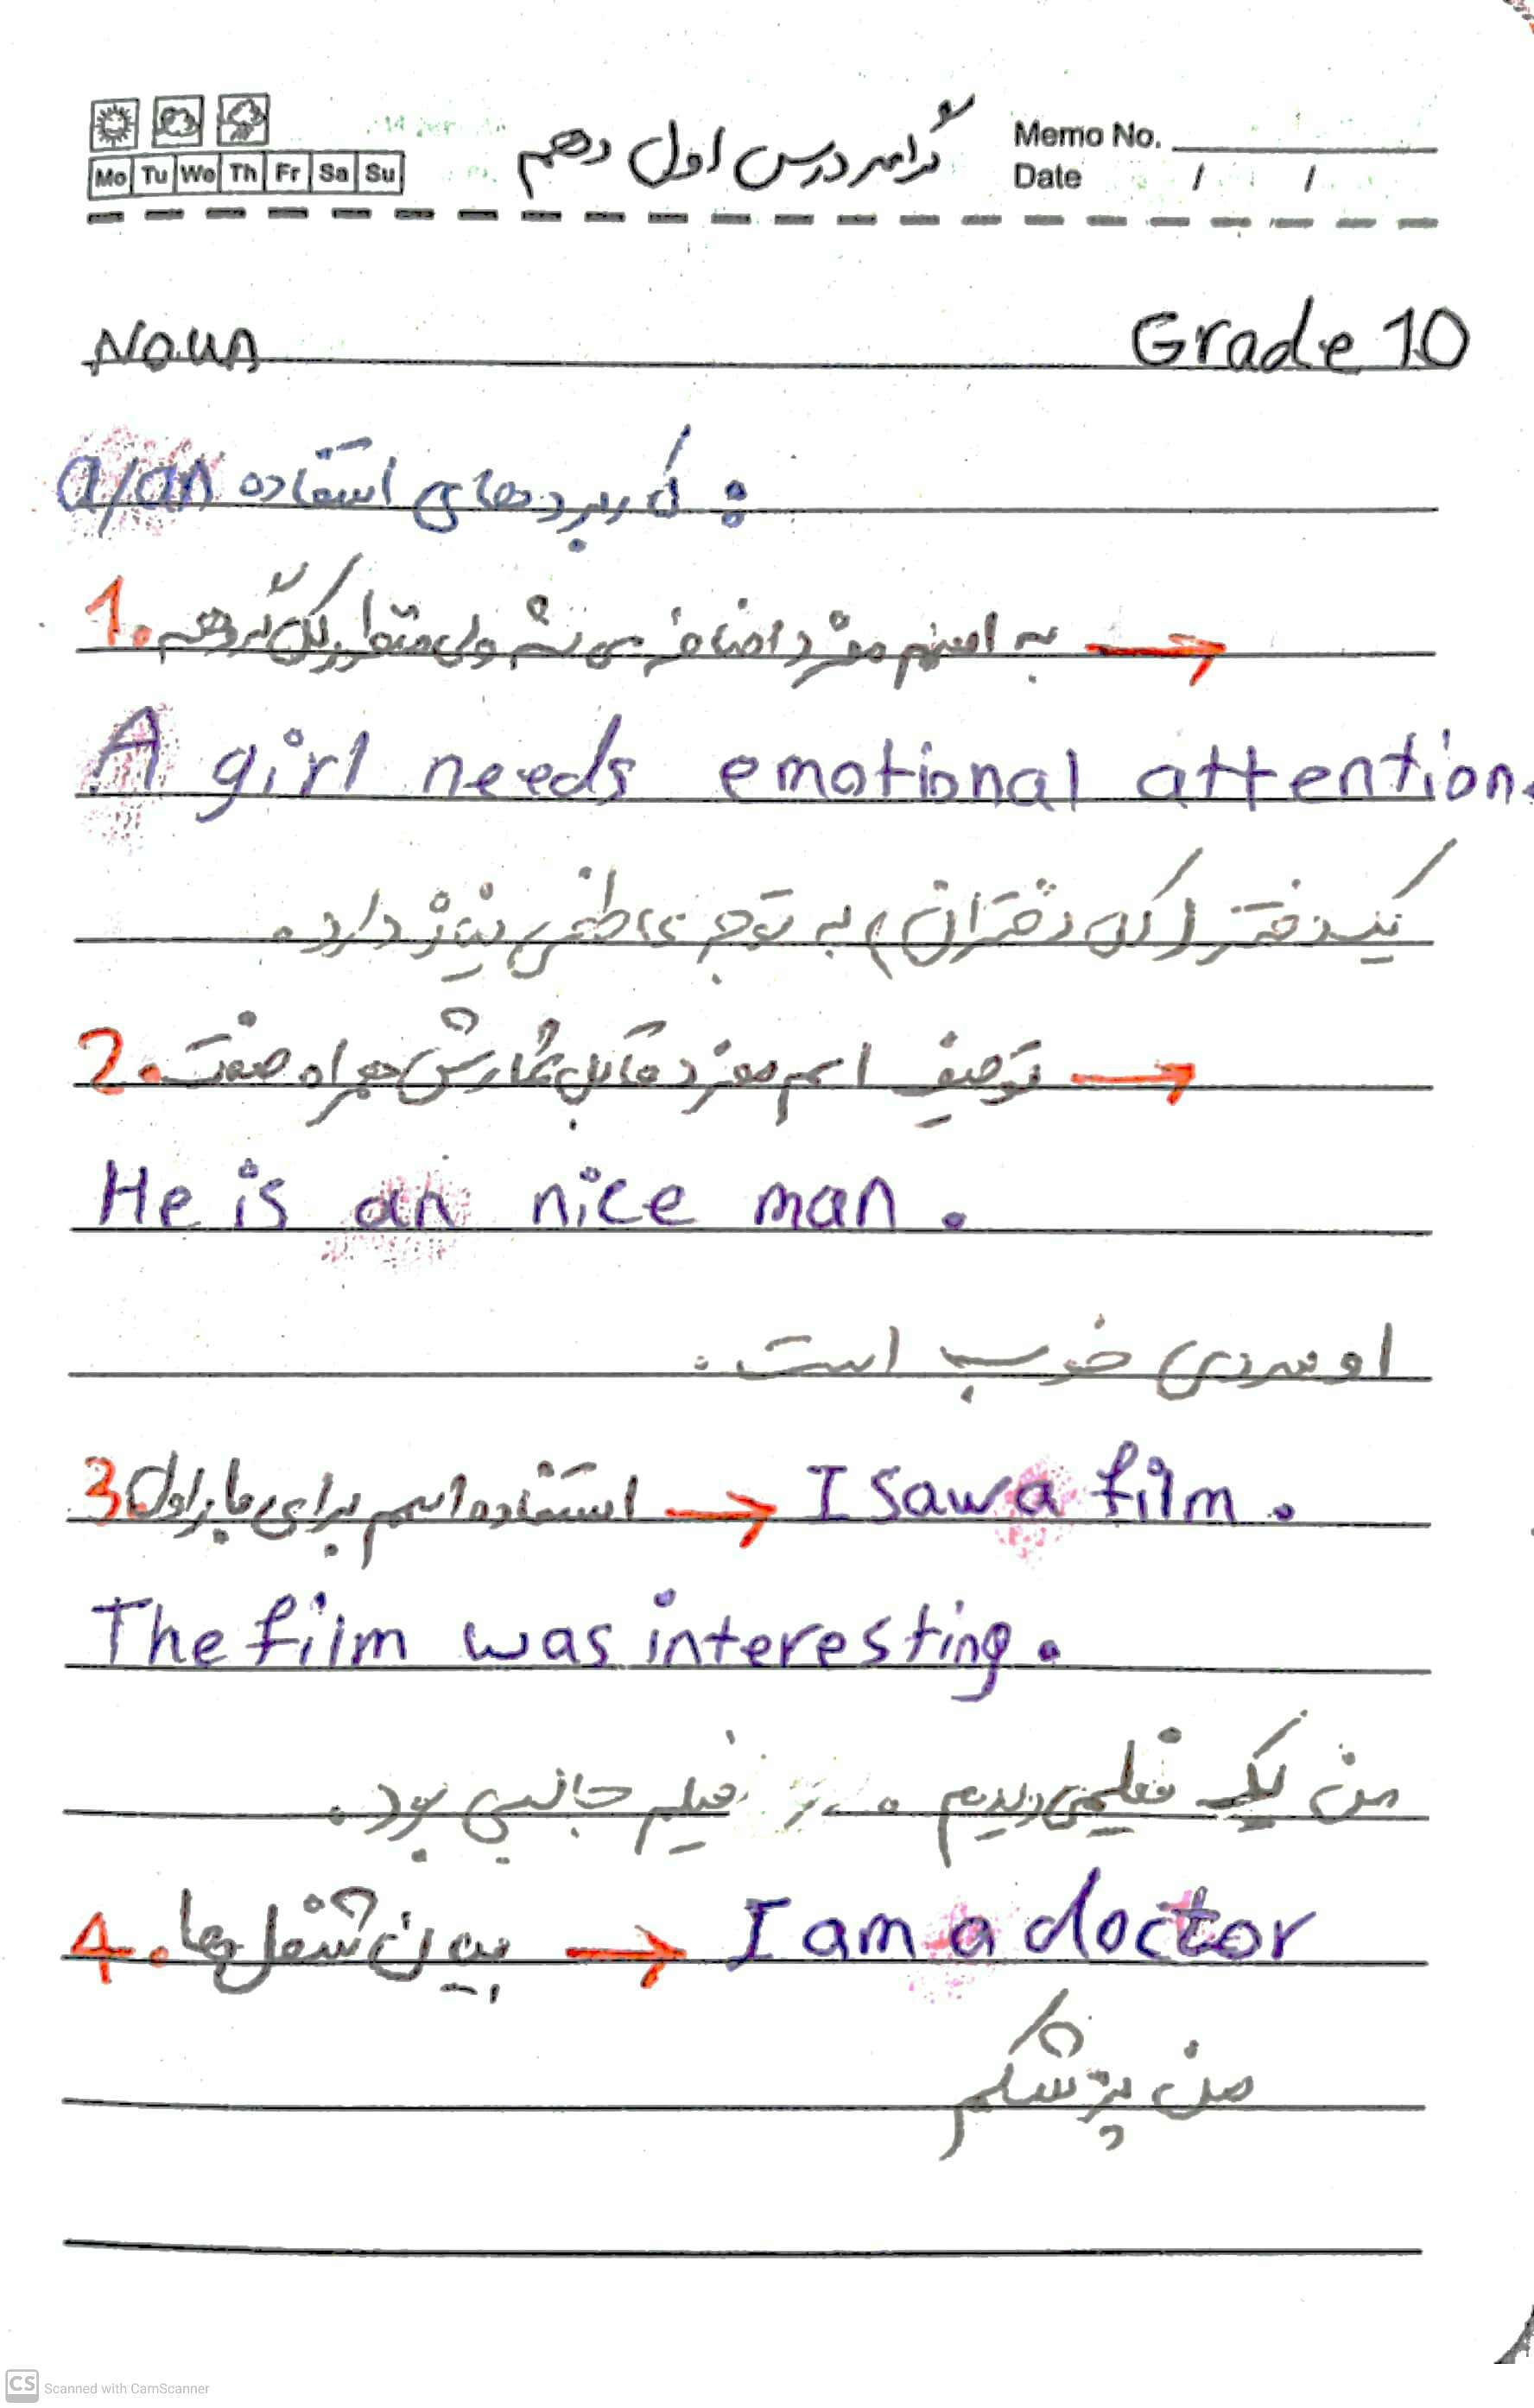 Mo Tu We Th Fr Sa Su
گرامر درس اول دهم
Memo No.
Date / /
Noun Grade 10
a/an کاربردهای استفاده :
1. به اسم مفرد اضافه می شه ولی منظور کل گروهه →
A girl needs emotional attention.
یک دختر (کل دختران) به توجه عاطفی نیاز دارد.
2. توصیف اسم مفرد قابل شمارش همراه صفت →
He is an nice man.
او مردی خوب است.
3. استفاده اسم برای بار اول → I saw a film.
The film was interesting.
من یک فیلمی دیدم. فیلم جالبی بود.
4. بیان شغل ها → I am a doctor
من پزشکم
CS Scanned with CamScanner